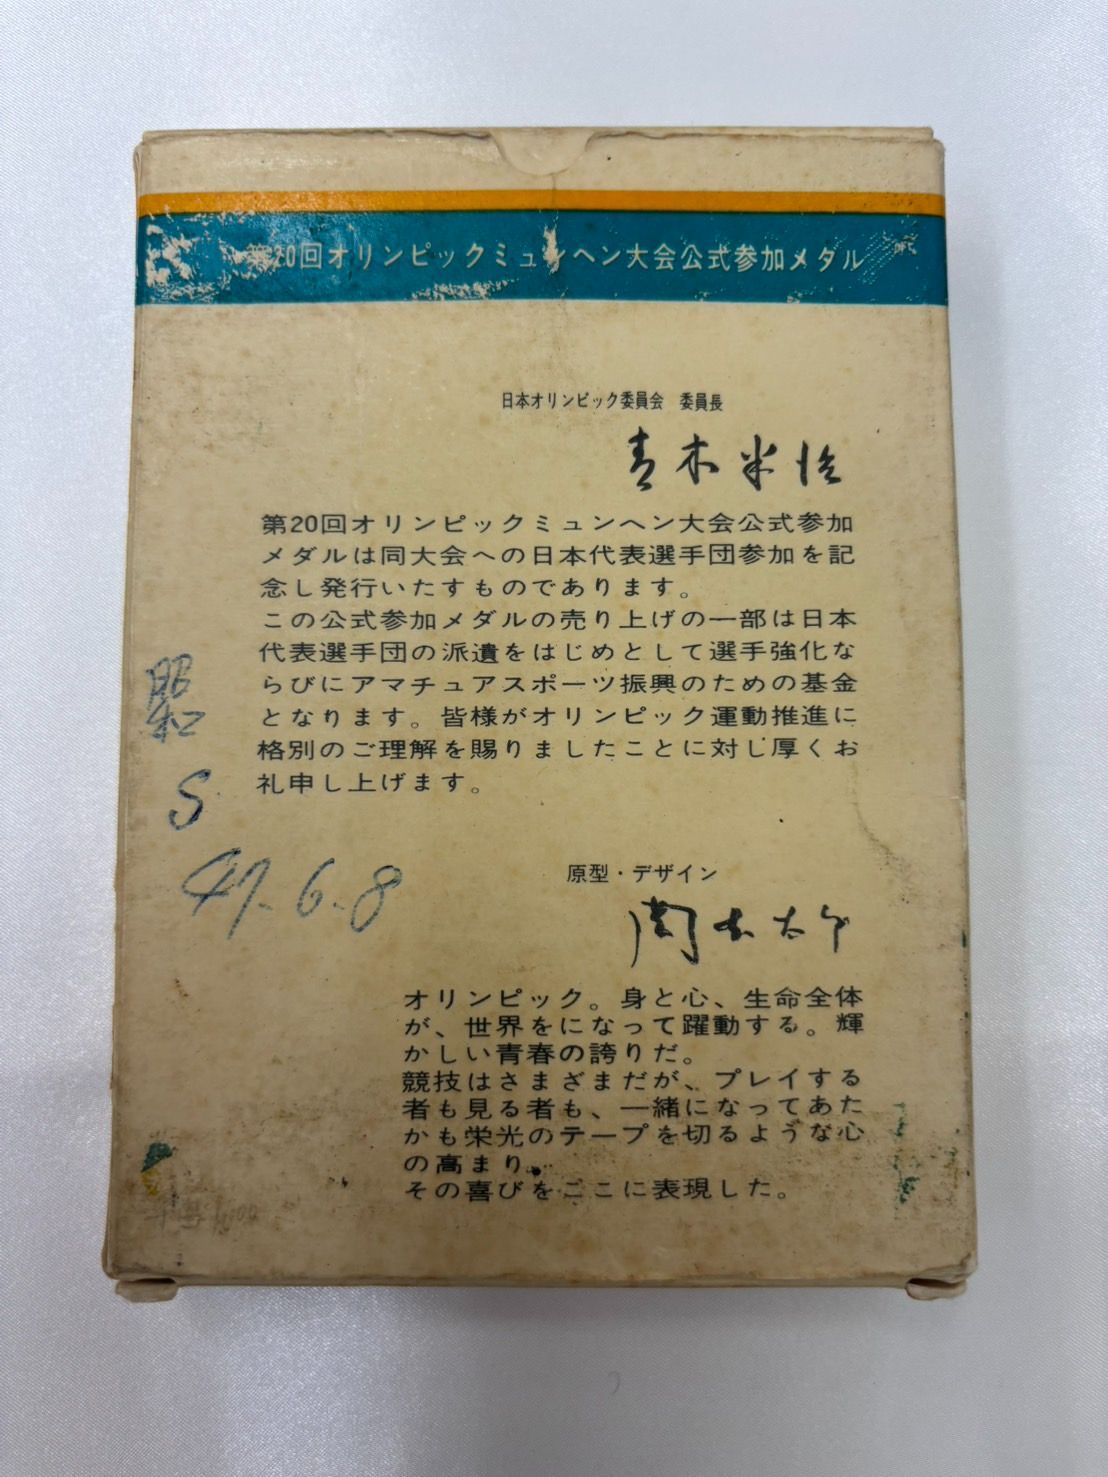 第20回オリンピックミュンヘン大会公式参加メダル
日本オリンピック委員会 委員長
青木半治
第20回オリンピックミュンヘン大会公式参加
メダルは同大会への日本代表選手団参加を記
念し発行いたすものであります。
この公式参加メダルの売り上げの一部は日本
代表選手団の派遺をはじめとして選手強化な
らびにアマチュアスポーツ振興のための基金
となります。皆様がオリンピック運動推進に
格別のご理解を賜りましたことに対し厚くお
礼申し上げます。
昭和
S
47.6.8
原型・デザイン
岡本太郎
オリンピック。身と心、生命全体
が、世界をになって躍動する。輝
かしい青春の誇りだ。
競技はさまざまだが、プレイする
者も見る者も、一緒になってあた
かも栄光のテープを切るような心
の高まり。
その喜びをここに表現した。